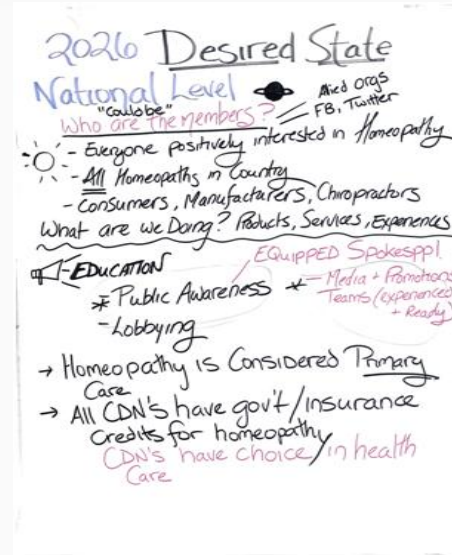 2026 Desired State
National Level
Allied Orgs
FB, Twitter
"Could be"
Who are the members?
- Everyone positively interested in Homeopathy
- All Homeopaths in Country
- Consumers, Manufacturers, Chiropractors
What are we Doing? Products, Services, Experiences
EQUIPPED Spokesppl
- EDUCATION
* Public Awareness
* - Media + Promotions
Teams (experienced
+ Ready)
- Lobbying
→ Homeopathy is Considered Primary
Care
→ All CDN's have gov't/insurance
Credits for homeopathy
CDN's have choice/in health
Care